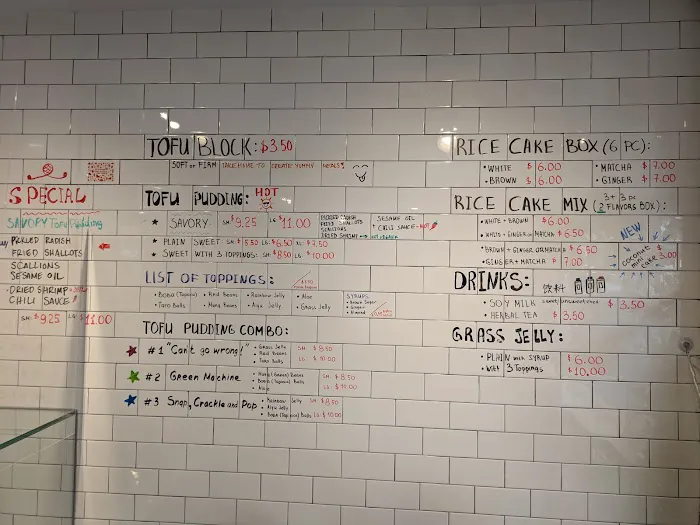 SPECIAL
SAVORY Tofu Pudding
PICKLED RADISH
FRIED SHALLOTS
SCALLIONS
SESAME OIL
DRIED SHRIMP
CHILI SAUCE
SM: $9.25 LG: $11.00
TOFU BLOCK: $3.50
SOFT or FIRM TAKE HOME TO CREATE YUMMY MEALS!
TOFU PUDDING: HOT
★ SAVORY SM $9.25 LG $11.00
PICKLED RADISH
FRIED SHALLOTS
SCALLIONS
DRIED SHRIMP
SESAME OIL
CHILI SAUCE - HOT
★ PLAIN SWEET SM: $5.50 LG: $6.50 XL: $7.50
★ SWEET WITH 3 TOPPINGS: SM: $8.50 LG: $10.00
LIST OF TOPPINGS:
• Boba (Tapioca) • Red Beans • Rainbow Jelly • Aloe
• Taro Balls • Mung Beans • Aiyu Jelly • Grass Jelly
SYRUPS:
• Brown Sugar
• Ginger
• Almond
TOFU PUDDING COMBO:
★ #1 "Can't go wrong!"
• Grass Jelly
• Red Beans
• Taro Balls
SM: $8.50
LG: $10.00
★ #2 Green Machine
• Mung (Green) Beans
• Boba (Tapioca) Balls
• Aloe
SM: $8.50
LG: $10.00
★ #3 Snap, Crackle and Pop
• Rainbow Jelly
• Aiyu Jelly
• Boba (Tapioca) Balls
SM: $8.50
LG: $10.00
RICE CAKE BOX (6 PC):
• WHITE $6.00 • MATCHA $7.00
• BROWN $6.00 • GINGER $7.00
RICE CAKE MIX (2 FLAVORS BOX): 3+3 pc
• WHITE + BROWN $6.00
• WHITE + GINGER or MATCHA $6.50
• BROWN + GINGER OR MATCHA $6.50
• GINGER + MATCHA $7.00
NEW
coconut
mini
cake
$3.00
DRINKS: 飲料
• SOY MILK sweet/unsweetened $3.50
• HERBAL TEA $3.50
GRASS JELLY:
• PLAIN with SYRUP $6.00
• With 3 Toppings $10.00